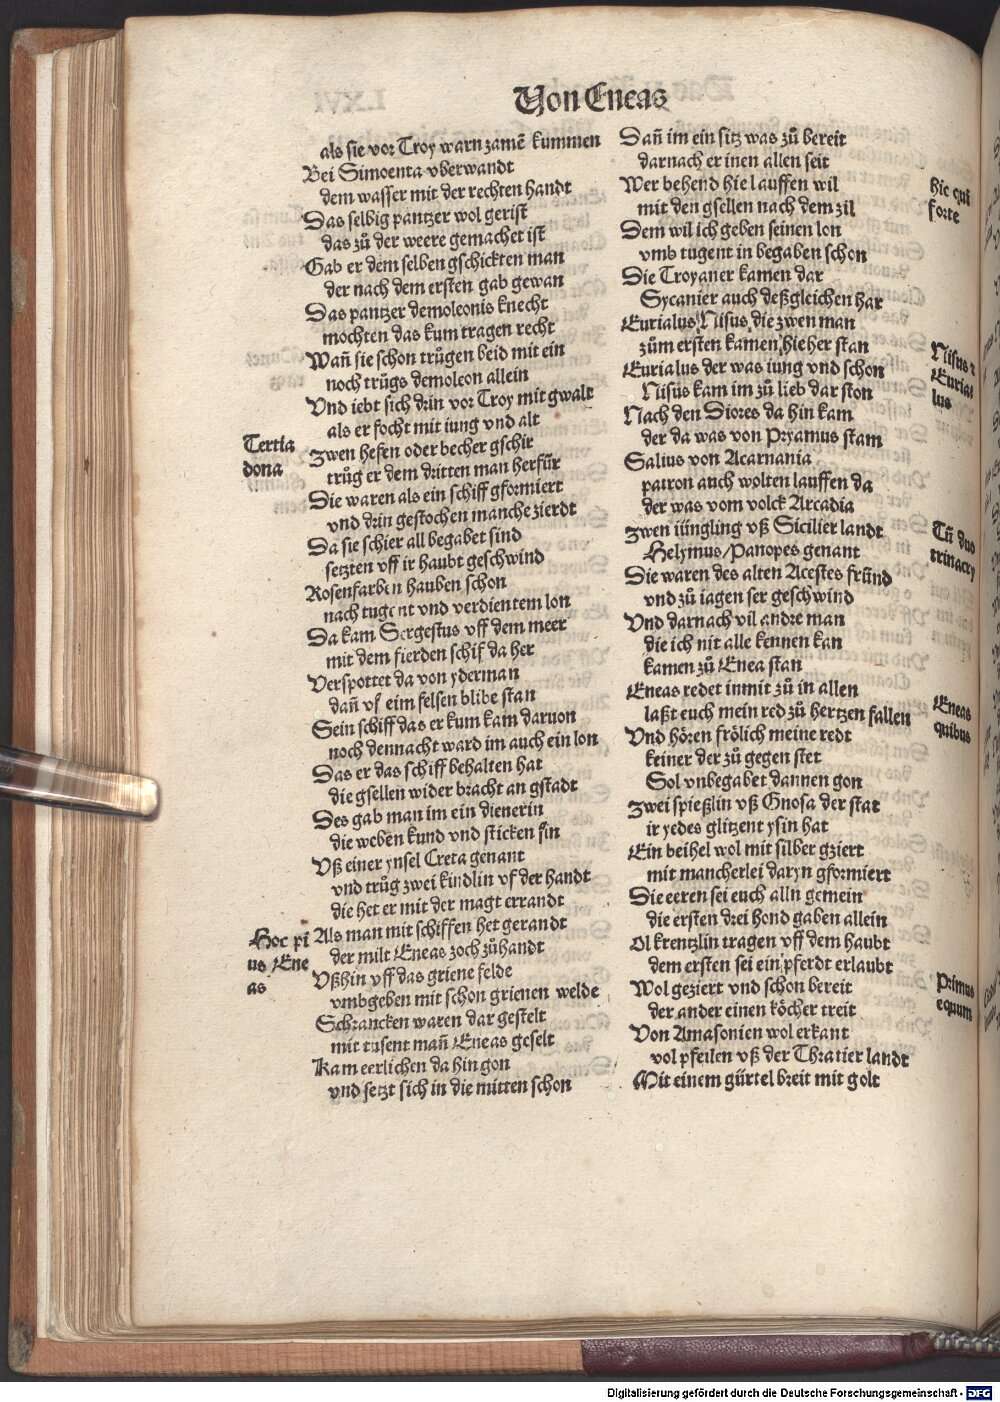 Von Eneas
als sie vor Troy warn zamē kummen
Bei Simoenta vberwandt
dem wasser mit der rechten handt
Das selbig pantzer wol gerist
das zů der weere gemachet ist
Gab er dem selben gschickten man
der nach dem ersten gab gewan
Das pantzer demoleonis knecht
mochten das kum tragen recht
Wañ sie schon trůgen beid mit ein
noch trůgs demoleon allein
Vnd iebt sich drin vor Troy mit gwalt
als er focht mit iung vnd alt
Tertia
dona
Zwen hefen oder becher gschir
trůg er dem dritten man herfür
Die waren als ein schiff gformiert
vnd drin gestochen manche zierdt
Da sie schier all begabet sind
setzten vff ir haubt geschwind
Rosenfarben hauben schon
nach tugent vnd verdientem lon
Da kam Sergestus vff dem meer
mit dem fierden schif da her
Verspottet da von yderman
dañ vf eim felsen blibe stan
Sein schiff das er kum kam daruon
noch dennacht ward im auch ein lon
Das er das schiff behalten hat
die gsellen wider bracht an gstadt
Des gab man im ein dienerin
die weben kund vnd sticken fin
Vß einer ynsel Creta genant
vnd trůg zwei kindlin vf der handt
die het er mit der magt errandt
Hoc pi
us Ene
as
Als man mit schiffen het gerandt
der milt Eneas zoch zůhandt
Vßhin vff das griene felde
vmbgeben mit schon grienen welde
Schrancken waren dar gestelt
mit tusent mañ Eneas geselt
Kam eerlichen da hin gon
vnd setzt sich in die mitten schon
Dañ im ein sitz was zů bereit
darnach er inen allen seit
Hic qui
forte
Wer behend hie lauffen wil
mit den gsellen nach dem zil
Dem wil ich geben seinen lon
vmb tugent in begaben schon
Die Troyaner kamen dar
Sycanier auch deßgleichen har
Nisus z
Eurias
lus
Eurialus, Nisus, die zwen man
zům ersten kamen, hieher stan
Eurialus der was iung vnd schon
Nisus kam im zů lieb dar ston
Nach den Diores da hin kam
der da was von Pryamus stam
Salius von Acarnania
patron auch wolten lauffen da
der was vom volck Arcadia
Tū duo
trinacry
Zwen iüngling vß Sicilier landt
Helymus/Panopes genant
Die waren des alten Acestes fründ
vnd zů iagen ser geschwind
Vnd darnach vil andre man
die ich nit alle kennen kan
kamen zů Enea stan
Eneas
quibus
Eneas redet inmit zů in allen
laßt euch mein red zů hertzen fallen
Vnd hören frölich meine redt
keiner der zů gegen stet
Sol vnbegabet dannen gon
Zwei spießlin vß Gnosa der stat
ir yedes glitzent ysin hat
Ein beihel wol mit silber gziert
mit mancherlei daryn gformiert
Die eeren sei euch alln gemein
die ersten drei hond gaben allein
Ol krentzlin tragen vff dem haubt
dem ersten sei ein pferdt erlaubt
Primus
equum
Wol geziert vnd schon bereit
der ander einen köcher treit
Von Amasonien wol erkant
vol pfeilen vß der Thratier landt
Mit einem gürtel breit mit golt
Digitalisierung gefördert durch die Deutsche Forschungsgemeinschaft - DFG